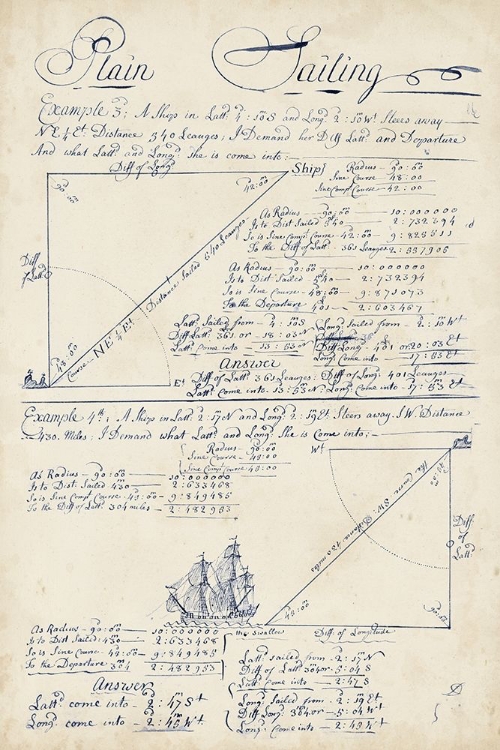 Plain Sailing
Example 3d; A Ship in Latt: 4:10 S and Long: 2:10 Wt Steers away
NE 1/4 Et Distance 540 Leauges; I Demand her Diff Latt: and Departure
And what Latt: and Long: She is come into:
Diff of Long:
Ship
42:00
Diff of Latt
Distance Sailed 540 Leauges
48:00
Course NE 1/4 Et
Et
Radius 90:00
Sine Course 48:00
Sine Compt Course 42:00
As Radius 90:00 10:0000000
Is to Dist Sailed 540 2:732394
So is Sine Compt Course 42:00 9:825511
To the Diff of Latt: 361 Leauges 2:557905
As Radius 90:00 10:0000000
Is to Dist Sailed 540 2:732394
So is Sine Course 48:00 9:871073
To the Departure 401 2:603467
Latt: Sailed from 4:10 S
Diff Latt: 361 or 18:03 N
Latt: Come into 13:53 N
Long: Sailed from 2:10 Wt
Diff Long: 401 or 20:03 Et
Long: Come into 17:53 Et
Answer
Diff of Latt: 361 Leauges: Diff of Long: 401 Leauges
Latt: Come into 13:53 N: Long: Come into 17:53 Et
Example 4th; A Ship in Latt: 2:17 N and Long: 2:19 Et Steers away SW Distance
430 Miles; I Demand what Latt: and Long: She is Come into;
Radius 90:00
Sine Course 45:00
Sine Compt Course 45:00
As Radius 90:00 10:0000000
Is to Dist Sailed 430 2:633468
So is Sine Compt Course 45:00 9:849485
To the Diff of Latt: 304 miles 2:482953
Wt
The Course SW Distance 430 miles
Diff of Latt:
45:00
the Swallow
Diff of Longitude
As Radius 90:00 10:0000000
Is to Dist Sailed 430 2:633468
So is Sine Course 45:00 9:849485
To the Departure 304 2:482953
Answer
Latt: come into 2:47 St
Long: come into 2:45 Wt
Latt: sailed from 2:17 N
Diff of Latt: 304 or 5:04 S
Latt: Come into 2:47 S
Long: Sailed from 2:19 Et
Diff Long: 304 or 5:04 Wt
Long: Come into 2:45 Wt